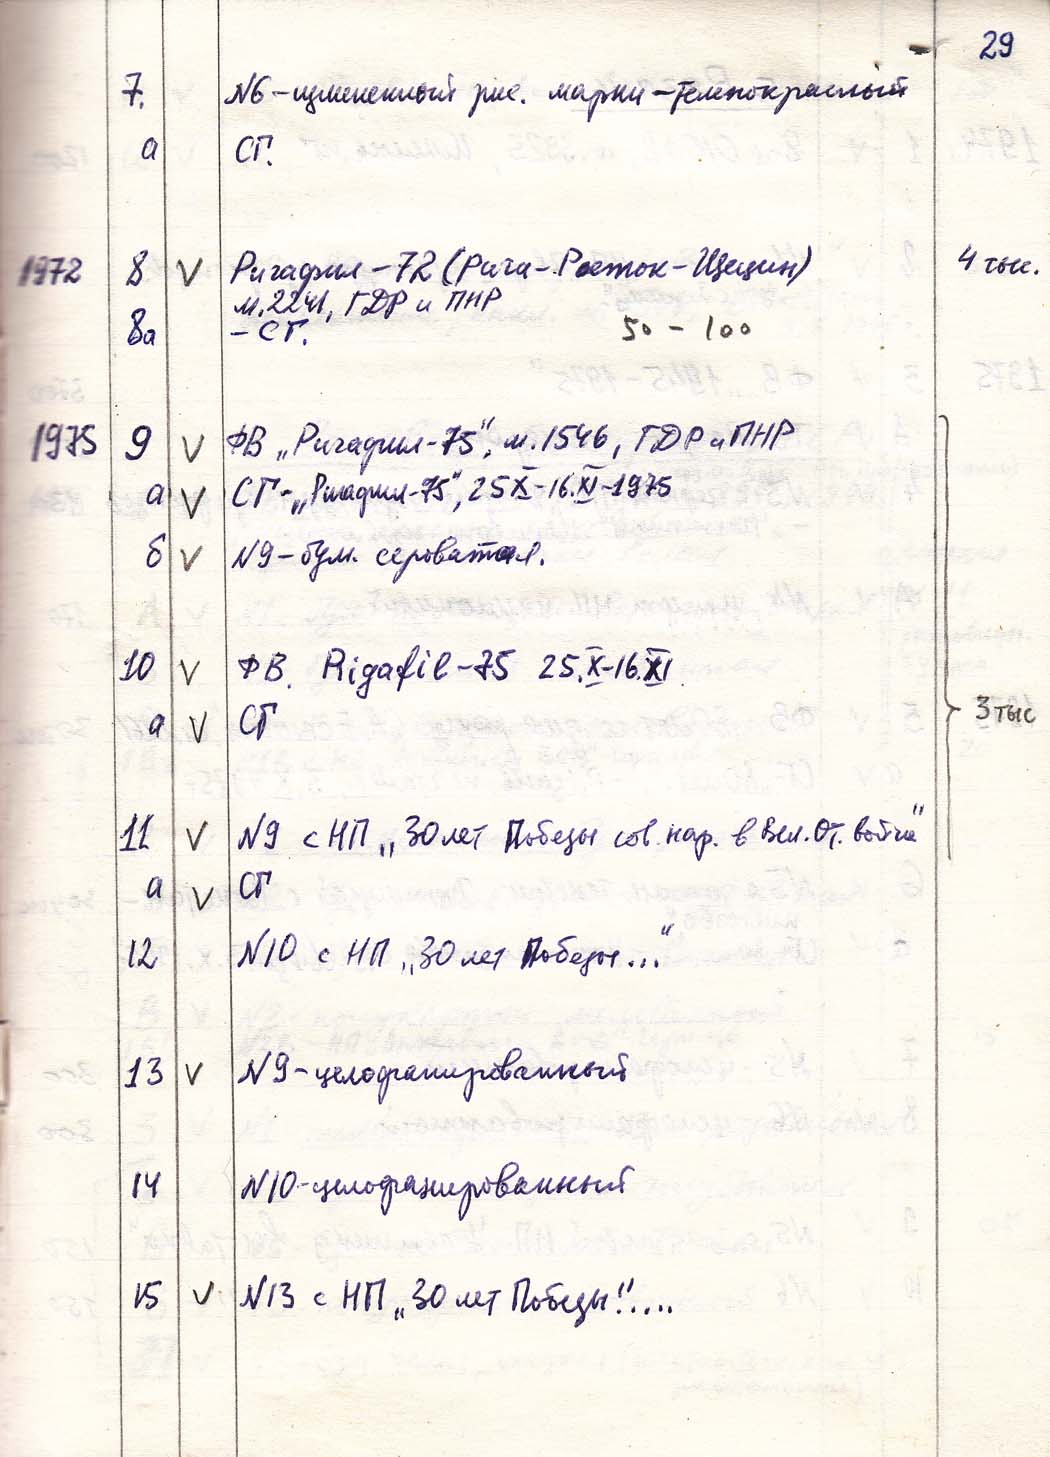 29
7. N6-измененный рис. марки-темнокрасный
а СГ.
1972 8 V Ригафил-72 (Рига-Росток-Щецин) 4 тыс.
м.2241, ГДР и ПНР
8а -СГ. 50-100
1975 9 V ФВ „Ригафил-75", м.1546, ГДР и ПНР
а V СГ-„Ригафил-75", 25 X-16.XI-1975
б V N9-бум. сероватая.
10 V ФВ. Rigafil-75 25.X-16.XI
а V СГ
3 тыс
11 V N9 с НП „30 лет Победы сов. нар. в Вел. От. войне"
а V СГ
12 N10 с НП „30 лет Победы..."
13 V N9-целофанированный
14 N10-целофанированный
15 V N13 с НП „30 лет Победы!"....